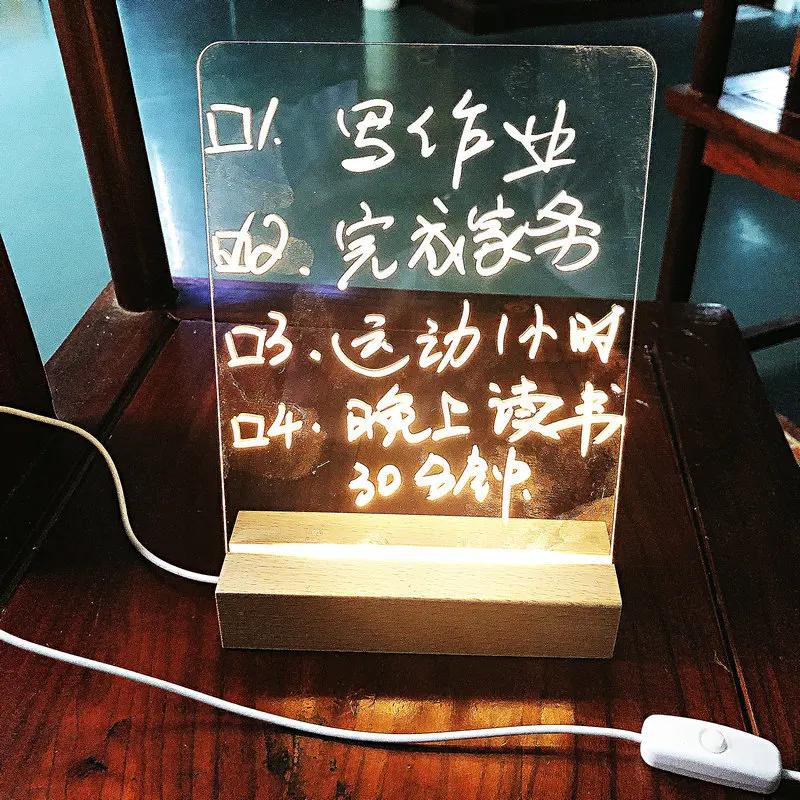 □1. 写作业
□2. 完成家务
□3. 运动1小时
□4. 晚上读书
30分钟.